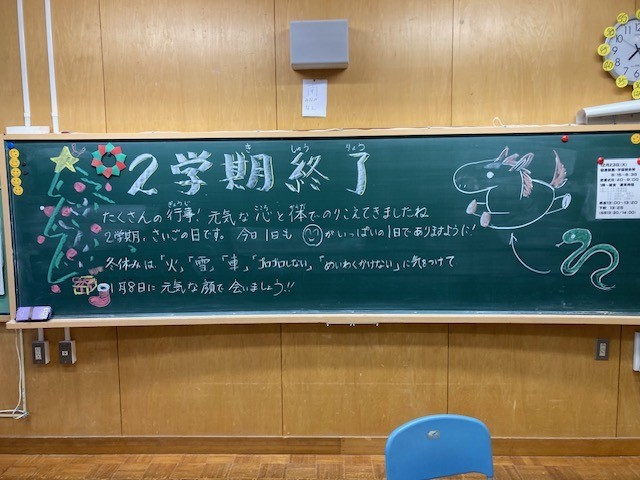 2学期終了
き しゅう りょう
たくさんの行事! 元気な心と体でのりこえてきましたね
ぎょうじ こころ からだ
2学期、さいごの日です。 今日1日も がいっぱいの1日でありますように!
冬休みは、「火」「雪」「車」「ゴロゴロしない」「めいわくかけない」に気をつけて
1月8日に元気な顔で会いましょう!!